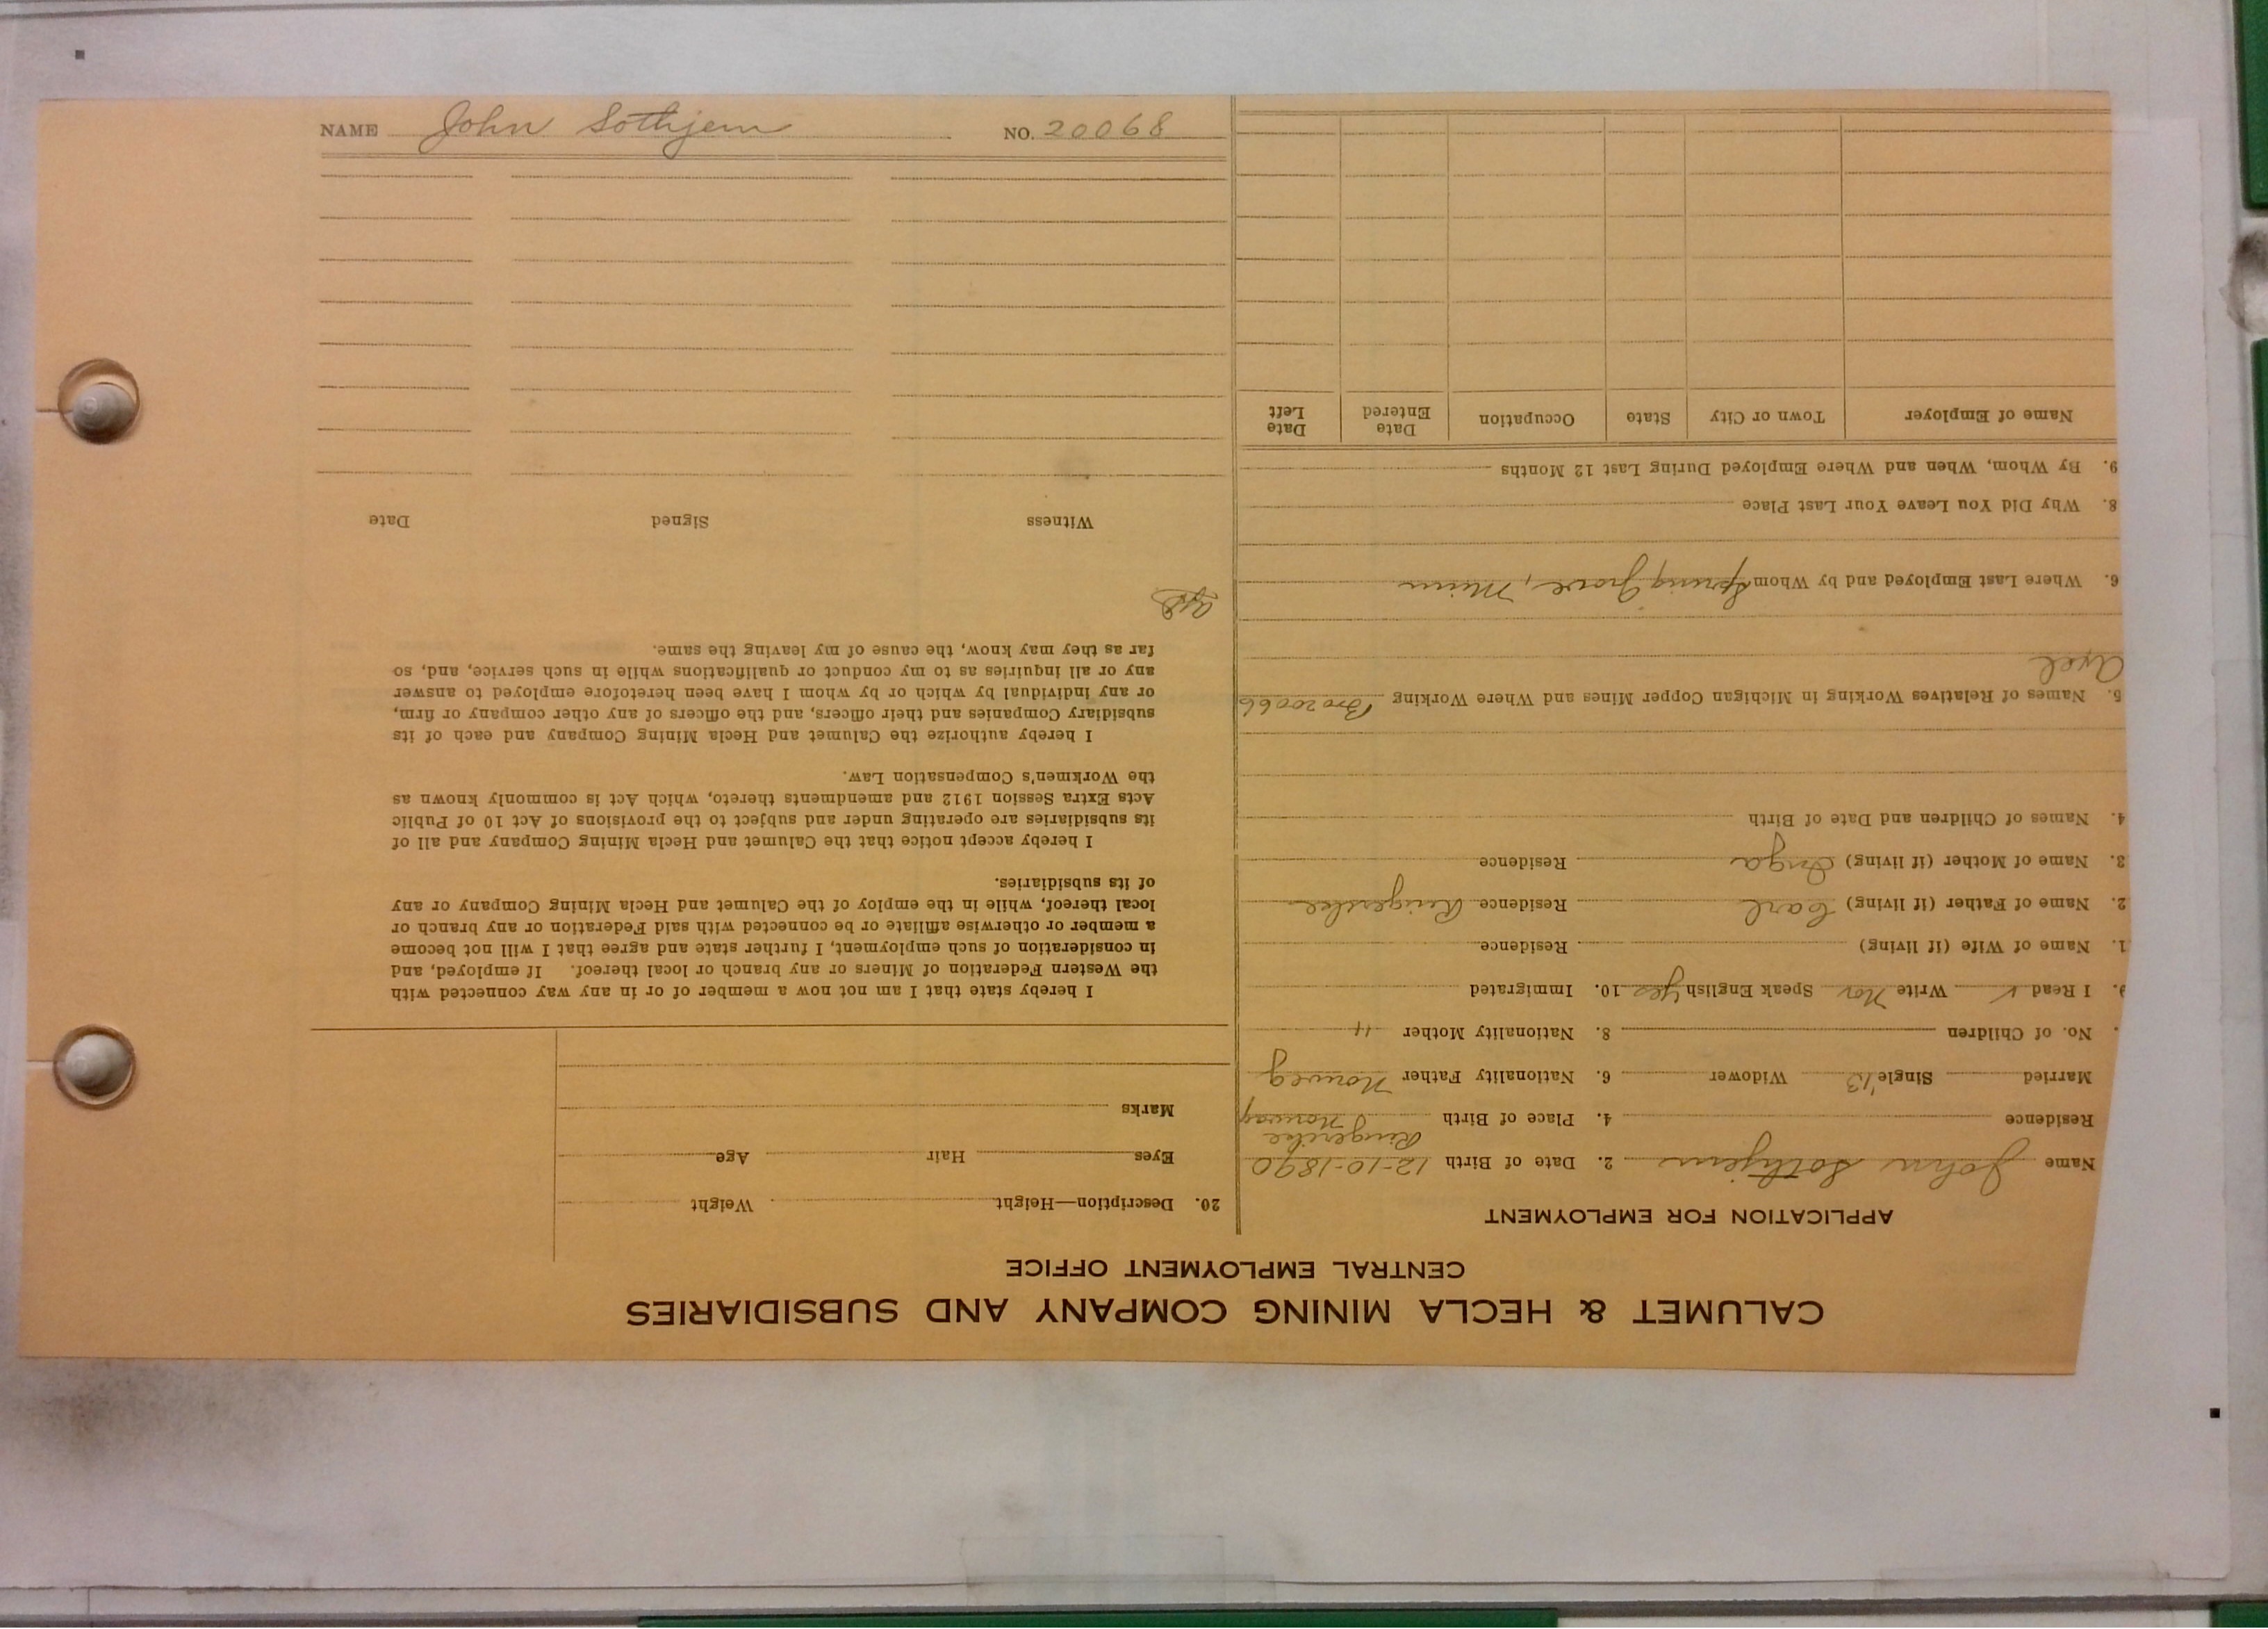 NAME John Sothjem NO. 20068
CALUMET & HECLA MINING COMPANY AND SUBSIDIARIES
CENTRAL EMPLOYMENT OFFICE
APPLICATION FOR EMPLOYMENT
Name John Sothjem 2. Date of Birth 12-10-1890
Ringerike
Residence 4. Place of Birth Norway
Married Single '13 Widower 6. Nationality Father Norweg
No. of Children 8. Nationality Mother "
9. I Read ✓ Write Nor Speak English Yes 10. Immigrated
1. Name of Wife (if living) Residence
2. Name of Father (if living) Carl Residence Ringerike
3. Name of Mother (if living) Inga Residence
4. Names of Children and Date of Birth
5. Names of Relatives Working in Michigan Copper Mines and Where Working Bro 20066
Axel
6. Where Last Employed and by Whom Spring Grove, Minn
8. Why Did You Leave Your Last Place
9. By Whom, When and Where Employed During Last 12 Months
Name of Employer Town or City State Occupation Date Entered Date Left
20. Description—Height Weight
Eyes Hair Age
Marks
I hereby state that I am not now a member of or in any way connected with
the Western Federation of Miners or any branch or local thereof. If employed, and
in consideration of such employment, I further state and agree that I will not become
a member or otherwise affiliate or be connected with said Federation or any branch or
local thereof, while in the employ of the Calumet and Hecla Mining Company or any
of its subsidiaries.
I hereby accept notice that the Calumet and Hecla Mining Company and all of
its subsidiaries are operating under and subject to the provisions of Act 10 of Public
Acts Extra Session 1912 and amendments thereto, which Act is commonly known as
the Workmen's Compensation Law.
I hereby authorize the Calumet and Hecla Mining Company and each of its
subsidiary Companies and their officers, and the officers of any other company or firm,
or any individual by which or by whom I have been heretofore employed to answer
any or all inquiries as to my conduct or qualifications while in such service, and, so
far as they may know, the cause of my leaving the same.
Witness Signed Date